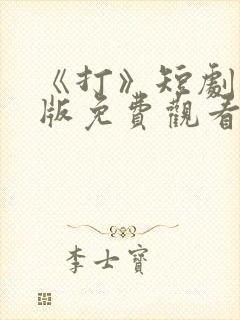 《打》短劇
版免費觀看
李士寶